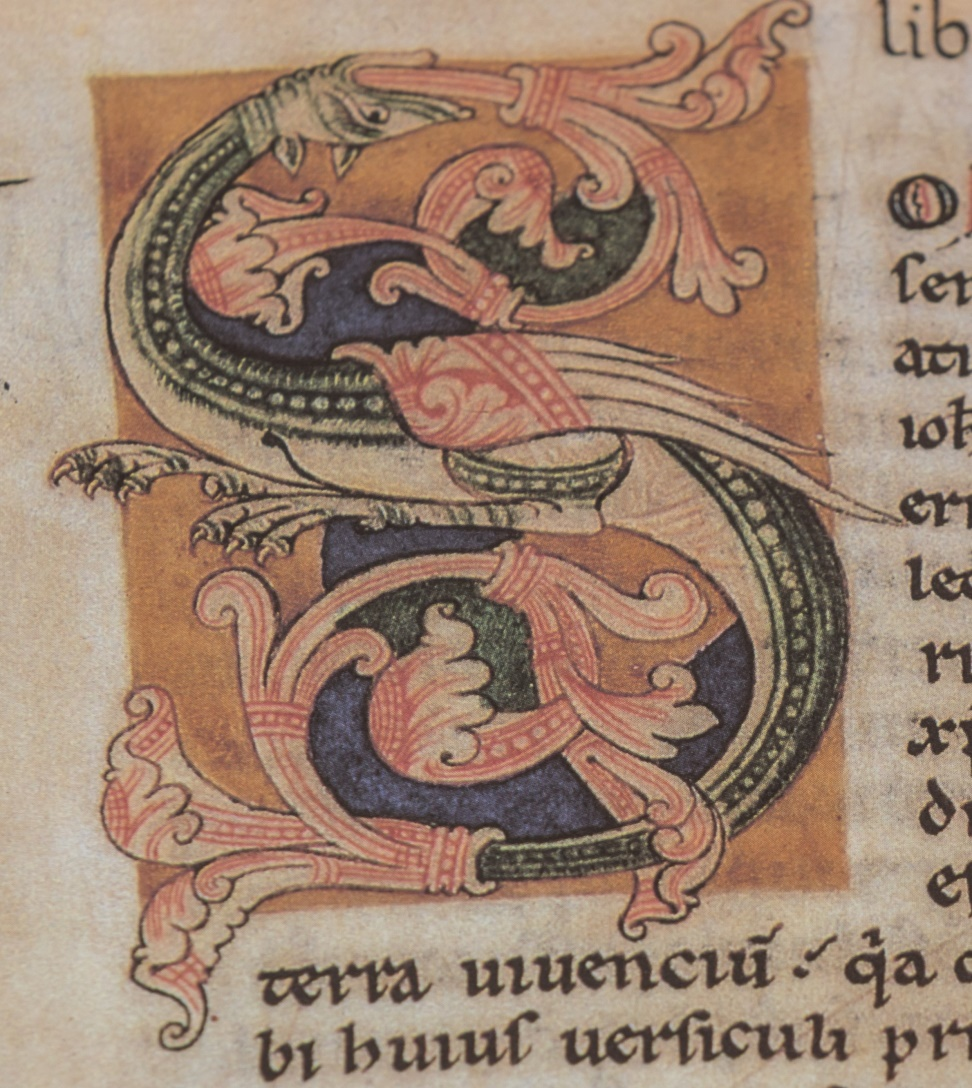 lib
O
sén
ati
ioh
err
lec
ri
xp̄
di
ep
terra uiuenciū ⁒ q̓a c
bi huius uersiculi pri